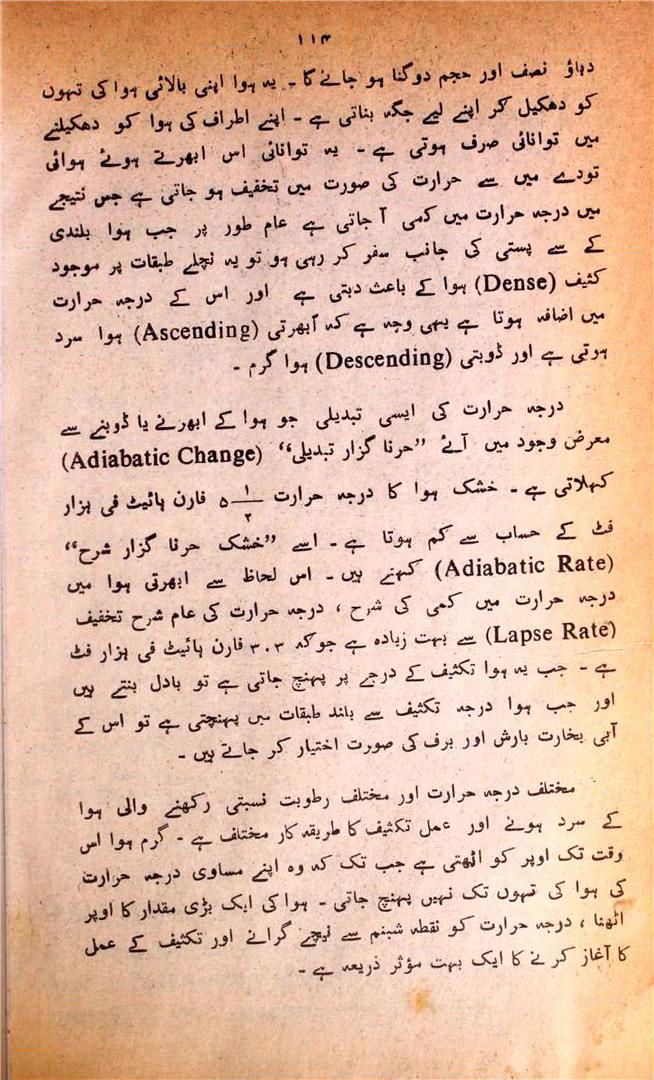 ۱۱۴
دباؤ نصف اور حجم دوگنا ہو جائے گا ۔ یہ ہوا اپنی بالائی ہوا کی تہوں
کو دھکیل کر اپنے لیے جگہ بناتی ہے ۔ اپنے اطراف کی ہوا کو دھکیلنے
میں توانائی صرف ہوتی ہے ۔ یہ توانائی اس ابھرتے ہوئے ہوائی
تودے میں سے حرارت کی صورت میں تخفیف ہو جاتی ہے جس نتیجے
میں درجہ حرارت میں کمی آ جاتی ہے عام طور پر جب ہوا بلندی
کے سے پستی کی جانب سفر کر رہی ہو تو یہ نچلے طبقات پر موجود
کثیف (Dense) ہوا کے باعث دبتی ہے اور اس کے درجہ حرارت
میں اضافہ ہوتا ہے یہی وجہ ہے کہ اُبھرتی (Ascending) ہوا سرد
ہوتی ہے اور ڈوبتی (Descending) ہوا گرم ۔
درجہ حرارت کی ایسی تبدیلی جو ہوا کے ابھرنے یا ڈوبنے سے
معرض وجود میں آئے ”حرنا گزار تبدیلی“ (Adiabatic Change)
کہلاتی ہے ۔ خشک ہوا کا درجہ حرارت ۵ ۱/۲ فارن ہائیٹ فی ہزار
فٹ کے حساب سے کم ہوتا ہے ۔ اسے ”خشک حرنا گزار شرح“
(Adiabatic Rate) کہتے ہیں ۔ اس لحاظ سے ابھرتی ہوا میں
درجہ حرارت میں کمی کی شرح ، درجہ حرارت کی عام شرح تخفیف
(Lapse Rate) سے بہت زیادہ ہے جوکہ ۳۰۳ فارن ہائیٹ فی ہزار فٹ
ہے ۔ جب یہ ہوا تکثیف کے درجے پر پہنچ جاتی ہے تو بادل بنتے ہیں
اور جب ہوا درجہ تکثیف سے بلند طبقات میں پہنچتی ہے تو اس کے
آبی بخارت بارش اور برف کی صورت اختیار کر جاتے ہیں ۔
مختلف درجہ حرارت اور مختلف رطوبت نسبتی رکھنے والی ہوا
کے سرد ہونے اور عمل تکثیف کا طریقہ کار مختلف ہے ۔ گرم ہوا اس
وقت تک اوپر کو اٹھتی ہے جب تک کہ وہ اپنے مساوی درجہ حرارت
کی ہوا کی تہوں تک نہیں پہنچ جاتی ۔ ہوا کی ایک بڑی مقدار کا اوپر
اٹھنا ، درجہ حرارت کو نقطہ شبنم سے نیچے گرانے اور تکثیف کے عمل
کا آغاز کرنے کا ایک بہت مؤثر ذریعہ ہے ۔